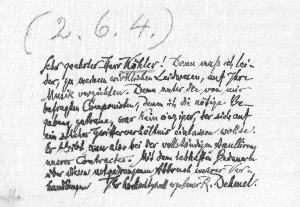 (2.6.4.)
Sehr geehrter Herr Köhler! Denn muß ich lei-
der, zu meinem wirklichen Leidwesen, auf Ihre
Musik verzichten. Denn außer den von mir
befragten Componisten, denen ich die nötige Be-
gabung zutraue, war kein einziger, der sich auf
ein solches verhältnis einlassen wollte.
Es bleibt nun also bei der vollständigen
unseres Contractes. Mit dem lebhaften Bedauern
über diesen notgedrungenen Abbruch unserer Ver-
handlungen Ihr hochachtungsvoll ergebener R. Dehmel.